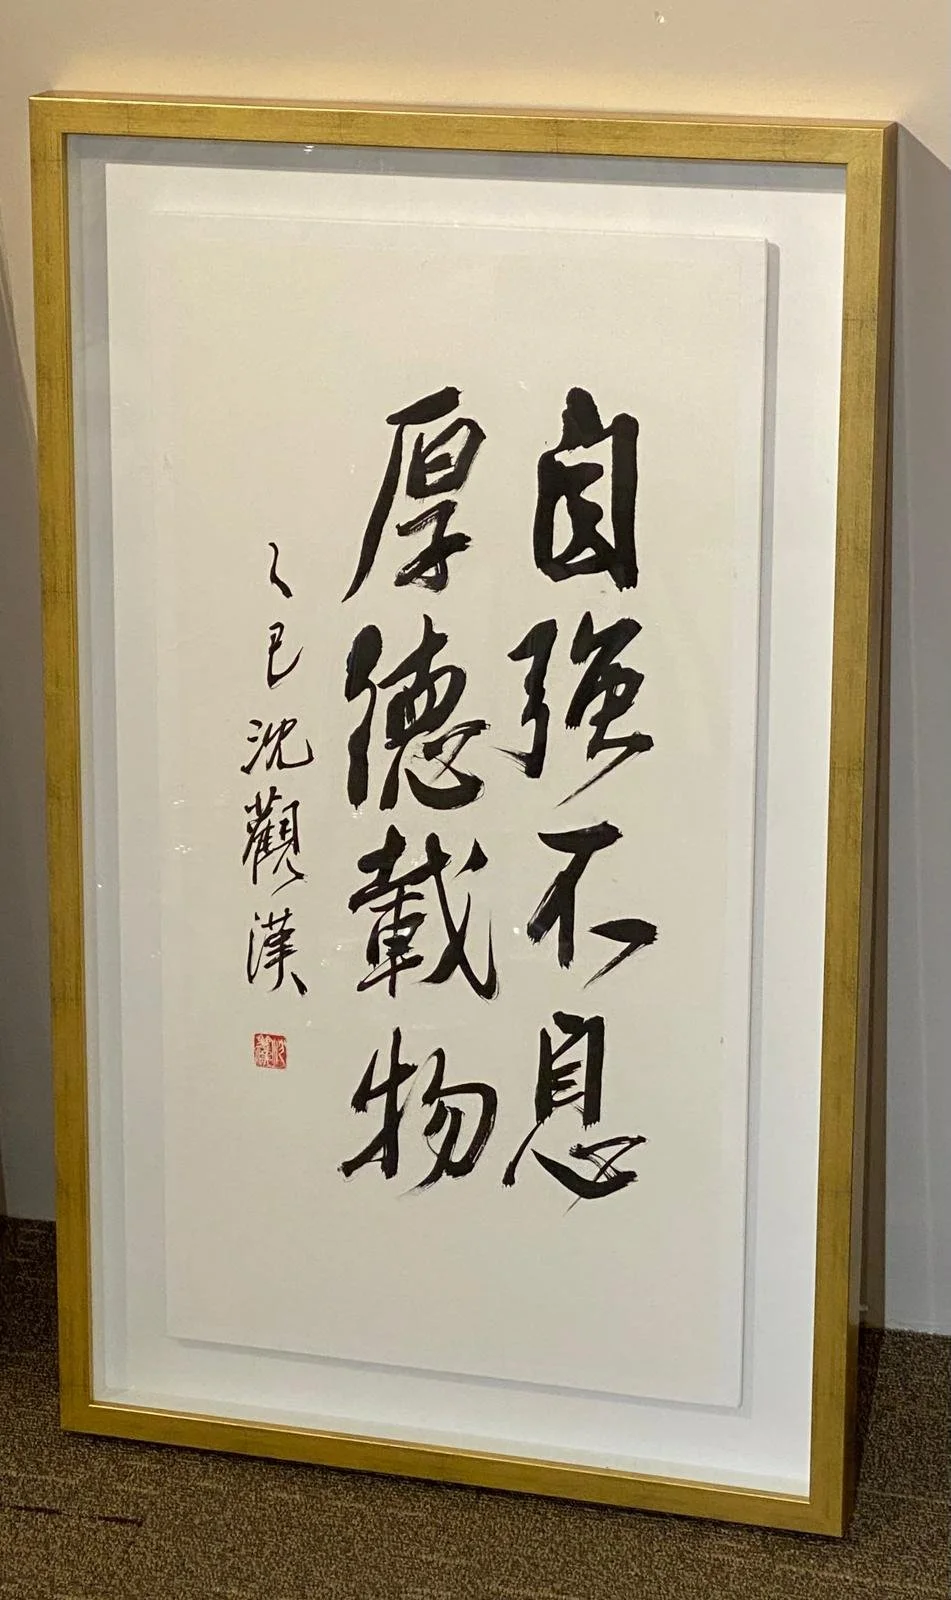 自强不息
厚德載物
乙巳沈觀漢